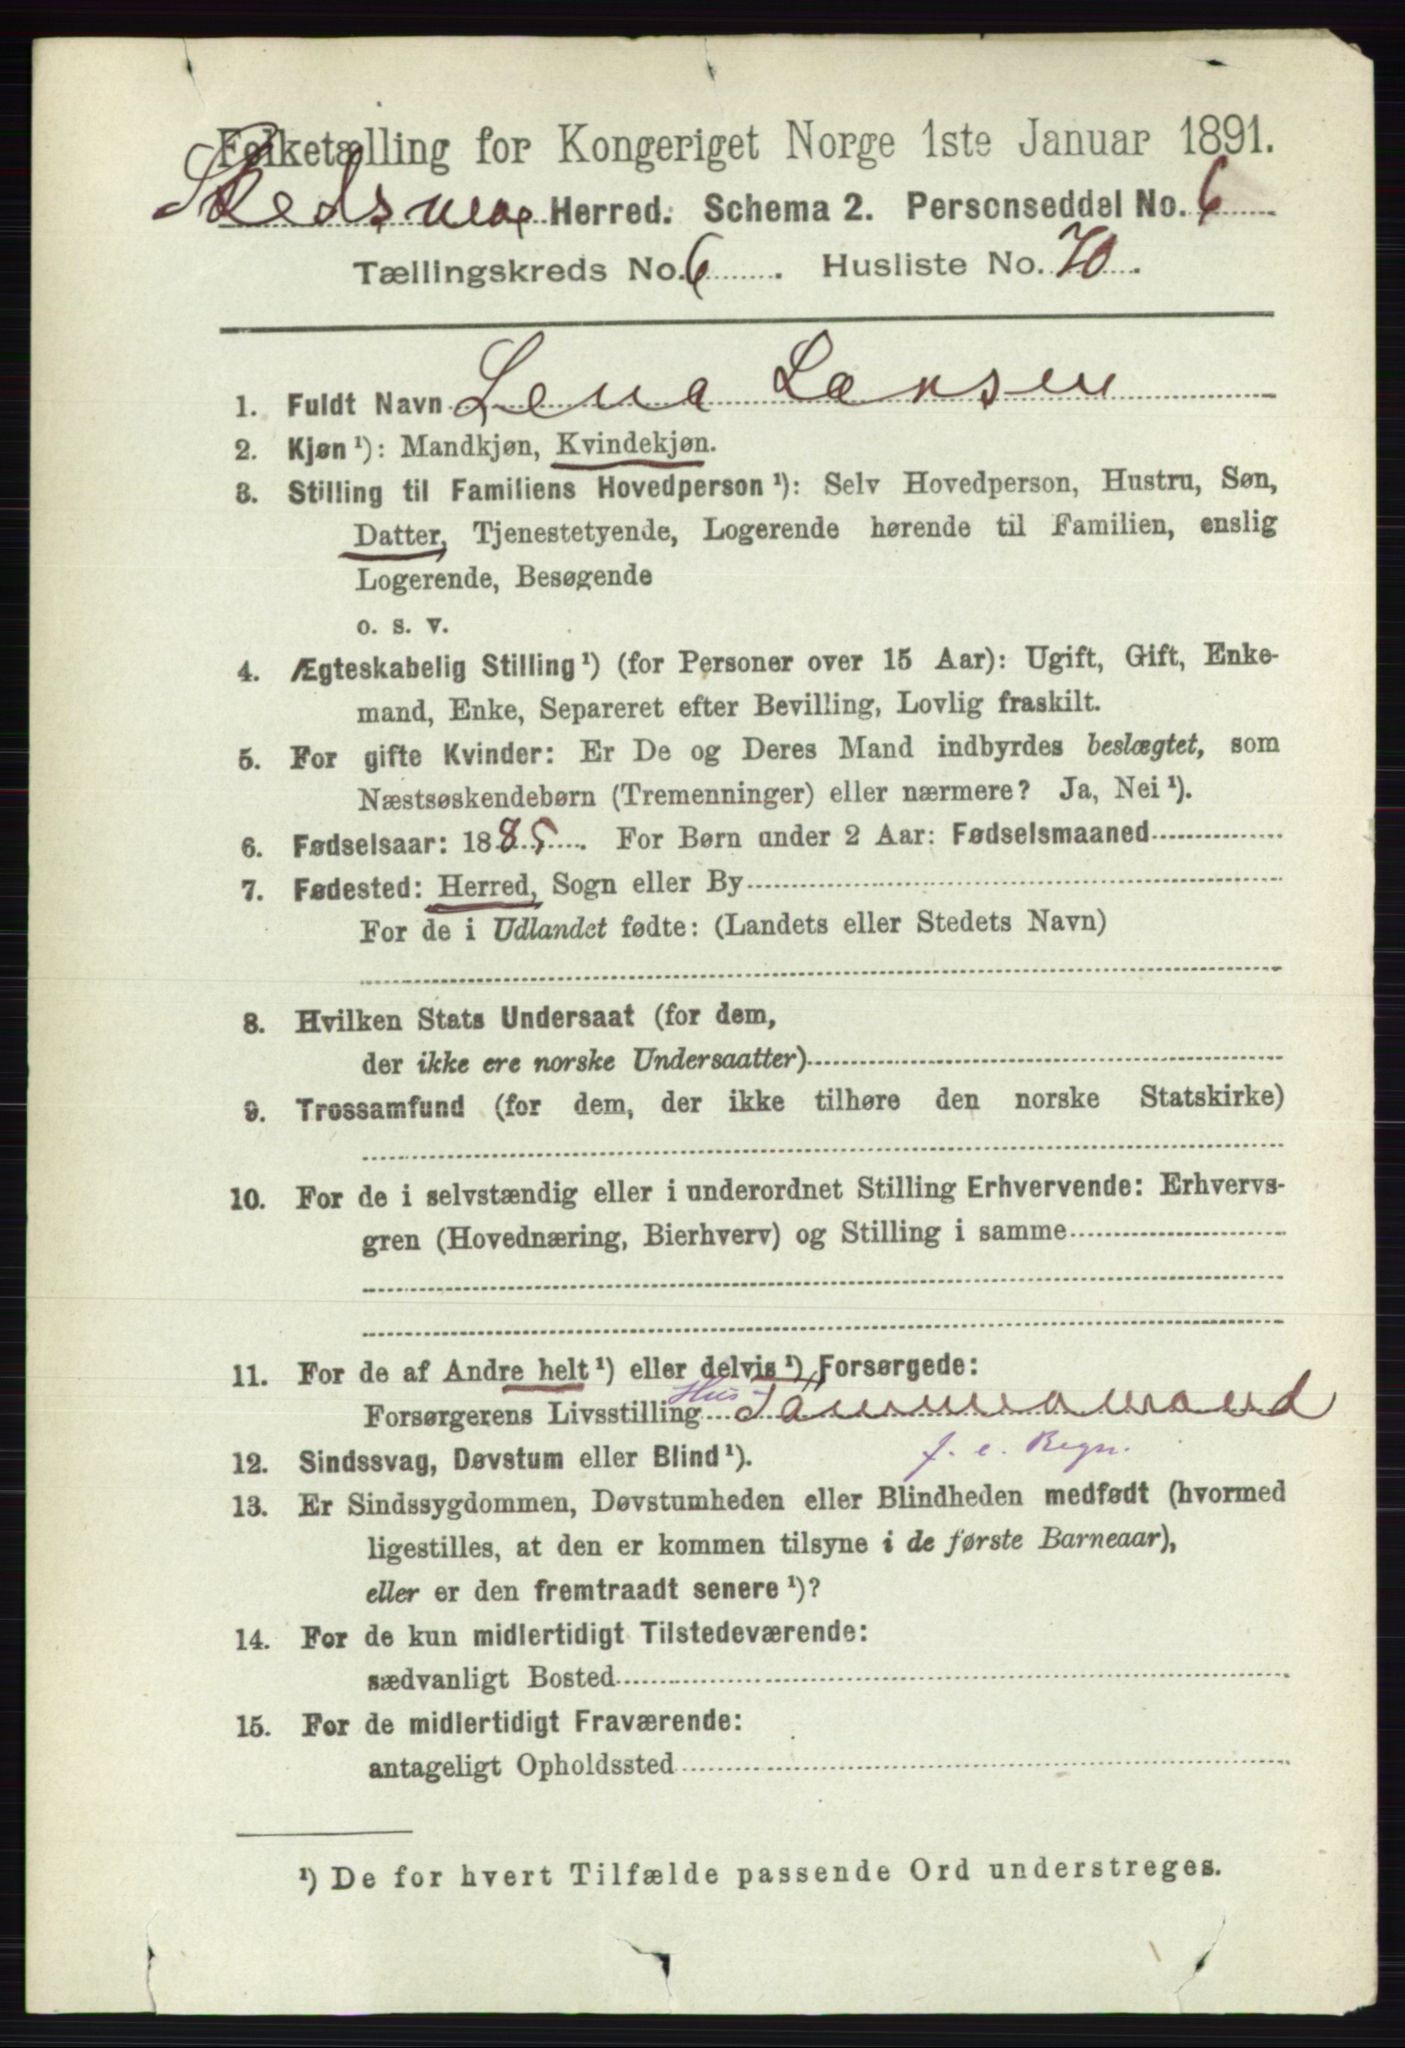 Folketælling for Kongeriget Norge 1ste Januar 1891.
Skedsmo Herred. Schema 2. Personseddel No. 6
Tællingskreds No. 6. Husliste No. 70.
1. Fuldt Navn Lena Larsen
2. Kjøn ¹): Mandkjøn, Kvindekjøn.
3. Stilling til Familiens Hovedperson ¹): Selv Hovedperson, Hustru, Søn,
Datter, Tjenestetyende, Logerende hørende til Familien, enslig
Logerende, Besøgende
o. s. v.
4. Ægteskabelig Stilling ¹) (for Personer over 15 Aar): Ugift, Gift, Enke-
mand, Enke, Separeret efter Bevilling, Lovlig fraskilt.
5. For gifte Kvinder: Er De og Deres Mand indbyrdes beslægtet, som
Næstsøskendebørn (Tremenninger) eller nærmere? Ja, Nei ¹).
6. Fødselsaar: 1885. For Børn under 2 Aar: Fødselsmaaned
7. Fødested: Herred, Sogn eller By
For de i Udlandet fødte: (Landets eller Stedets Navn)
8. Hvilken Stats Undersaat (for dem,
der ikke ere norske Undersaatter)
9. Trossamfund (for dem, der ikke tilhøre den norske Statskirke)
10. For de i selvstændig eller i underordnet Stilling Erhvervende: Erhvervs-
gren (Hovednæring, Bierhverv) og Stilling i samme
11. For de af Andre helt ¹) eller delvis ¹) Forsørgede:
Forsørgerens Livsstilling Hus- Tømmermand
f. e. Regn.
12. Sindssvag, Døvstum eller Blind ¹).
13. Er Sindssygdommen, Døvstumheden eller Blindheden medfødt (hvormed
ligestilles, at den er kommen tilsyne i de første Barneaar),
eller er den fremtraadt senere ¹)?
14. For de kun midlertidigt Tilstedeværende:
sædvanligt Bosted
15. For de midlertidigt Fraværende:
antageligt Opholdssted
¹) De for hvert Tilfælde passende Ord understreges.